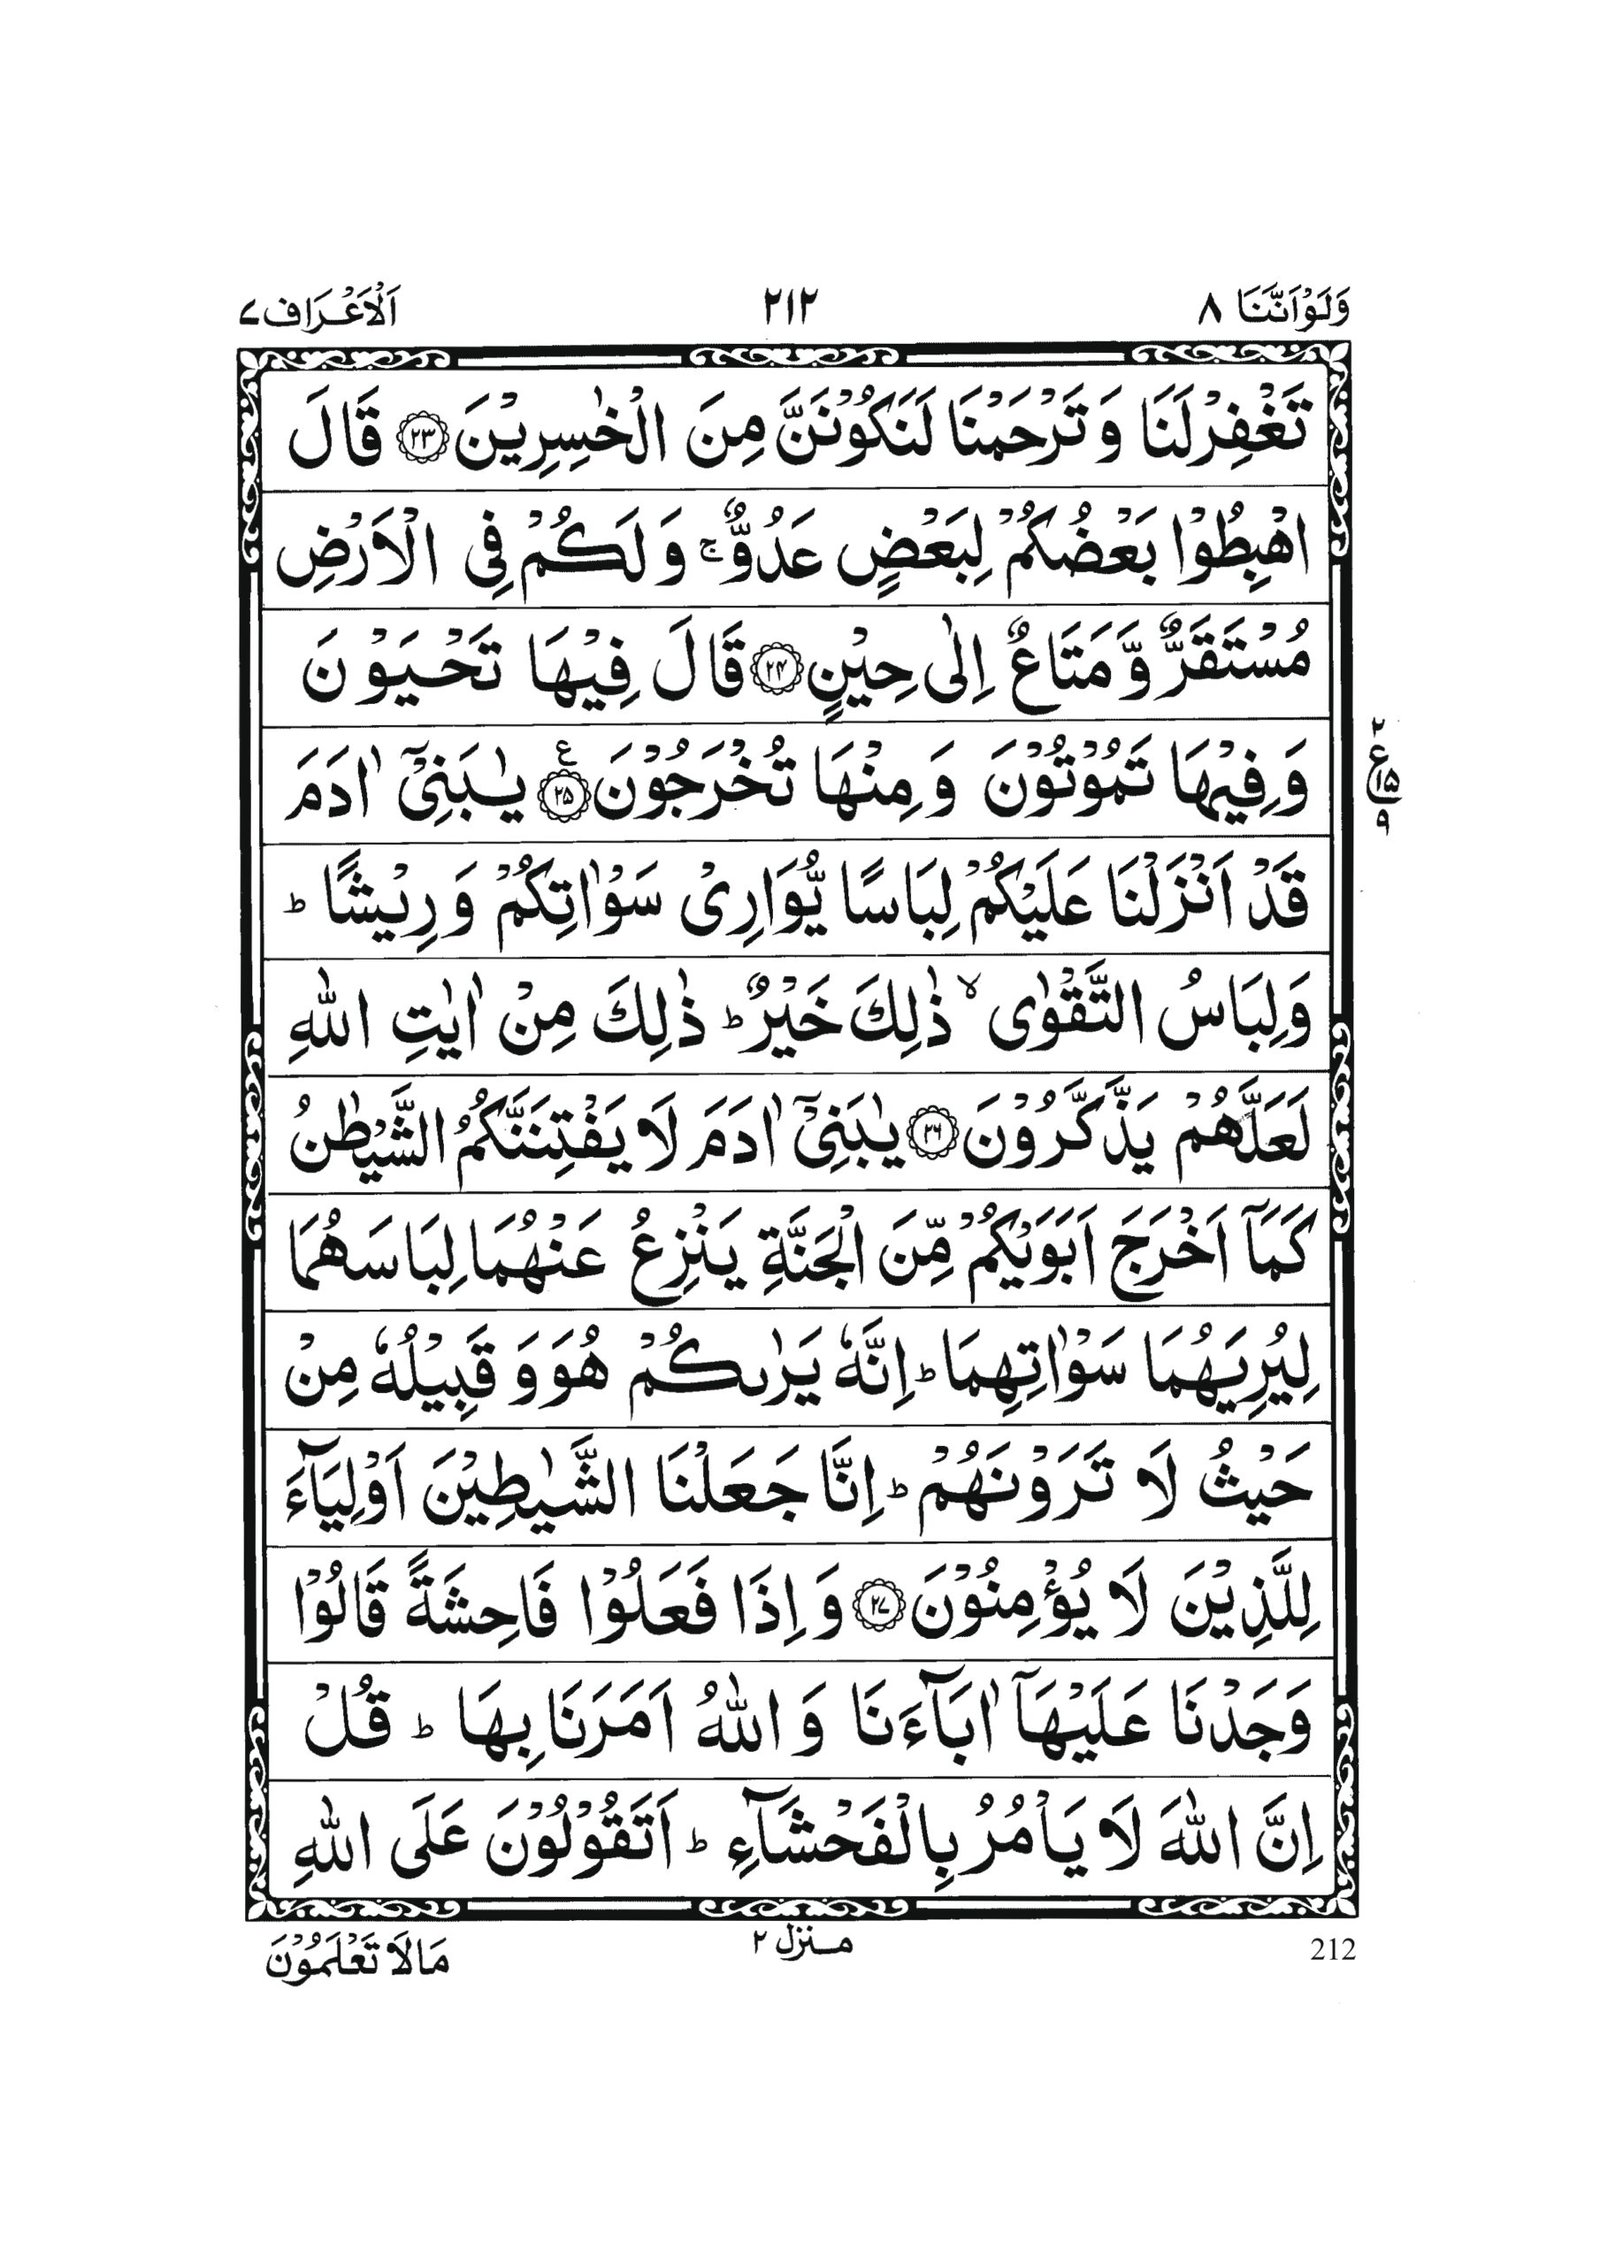 وَلَوْاَنَّنَا ٨ ٢١٢ اَلْاَعْرَاف ٧
تَغْفِرْلَنَا وَ تَرْحَمْنَا لَنَكُوْنَنَّ مِنَ الْخٰسِرِيْنَ ۝٢٣ قَالَ
اهْبِطُوْا بَعْضُكُمْ لِبَعْضٍ عَدُوٌّ ۚ وَ لَكُمْ فِى الْاَرْضِ
مُسْتَقَرٌّ وَّ مَتَاعٌ اِلٰى حِيْنٍ ۝٢٤ قَالَ فِيْهَا تَحْيَوْنَ
وَ فِيْهَا تَمُوْتُوْنَ وَ مِنْهَا تُخْرَجُوْنَ ۝٢٥ ع يٰبَنِىْۤ اٰدَمَ
٢ ع ١٥ ٩
قَدْ اَنْزَلْنَا عَلَيْكُمْ لِبَاسًا يُّوَارِىْ سَوْاٰتِكُمْ وَ رِيْشًا ؕ
وَلِبَاسُ التَّقْوٰى ۙ ذٰلِكَ خَيْرٌ ؕ ذٰلِكَ مِنْ اٰيٰتِ اللّٰهِ
لَعَلَّهُمْ يَذَّكَّرُوْنَ ۝٢٦ يٰبَنِىْۤ اٰدَمَ لَا يَفْتِنَنَّكُمُ الشَّيْطٰنُ
كَمَاۤ اَخْرَجَ اَبَوَيْكُمْ مِّنَ الْجَنَّةِ يَنْزِعُ عَنْهُمَا لِبَاسَهُمَا
لِيُرِيَهُمَا سَوْاٰتِهِمَا ؕ اِنَّهٗ يَرٰىكُمْ هُوَ وَ قَبِيْلُهٗ مِنْ
حَيْثُ لَا تَرَوْنَهُمْ ؕ اِنَّا جَعَلْنَا الشَّيٰطِيْنَ اَوْلِيَآءَ
لِلَّذِيْنَ لَا يُؤْمِنُوْنَ ۝٢٧ وَ اِذَا فَعَلُوْا فَاحِشَةً قَالُوْا
وَجَدْنَا عَلَيْهَاۤ اٰبَآءَنَا وَ اللّٰهُ اَمَرَنَا بِهَا ؕ قُلْ
اِنَّ اللّٰهَ لَا يَاْمُرُ بِالْفَحْشَآءِ ؕ اَتَقُوْلُوْنَ عَلَى اللّٰهِ
212 مـنزل ٢ مَالَا تَعْلَمُوْنَ